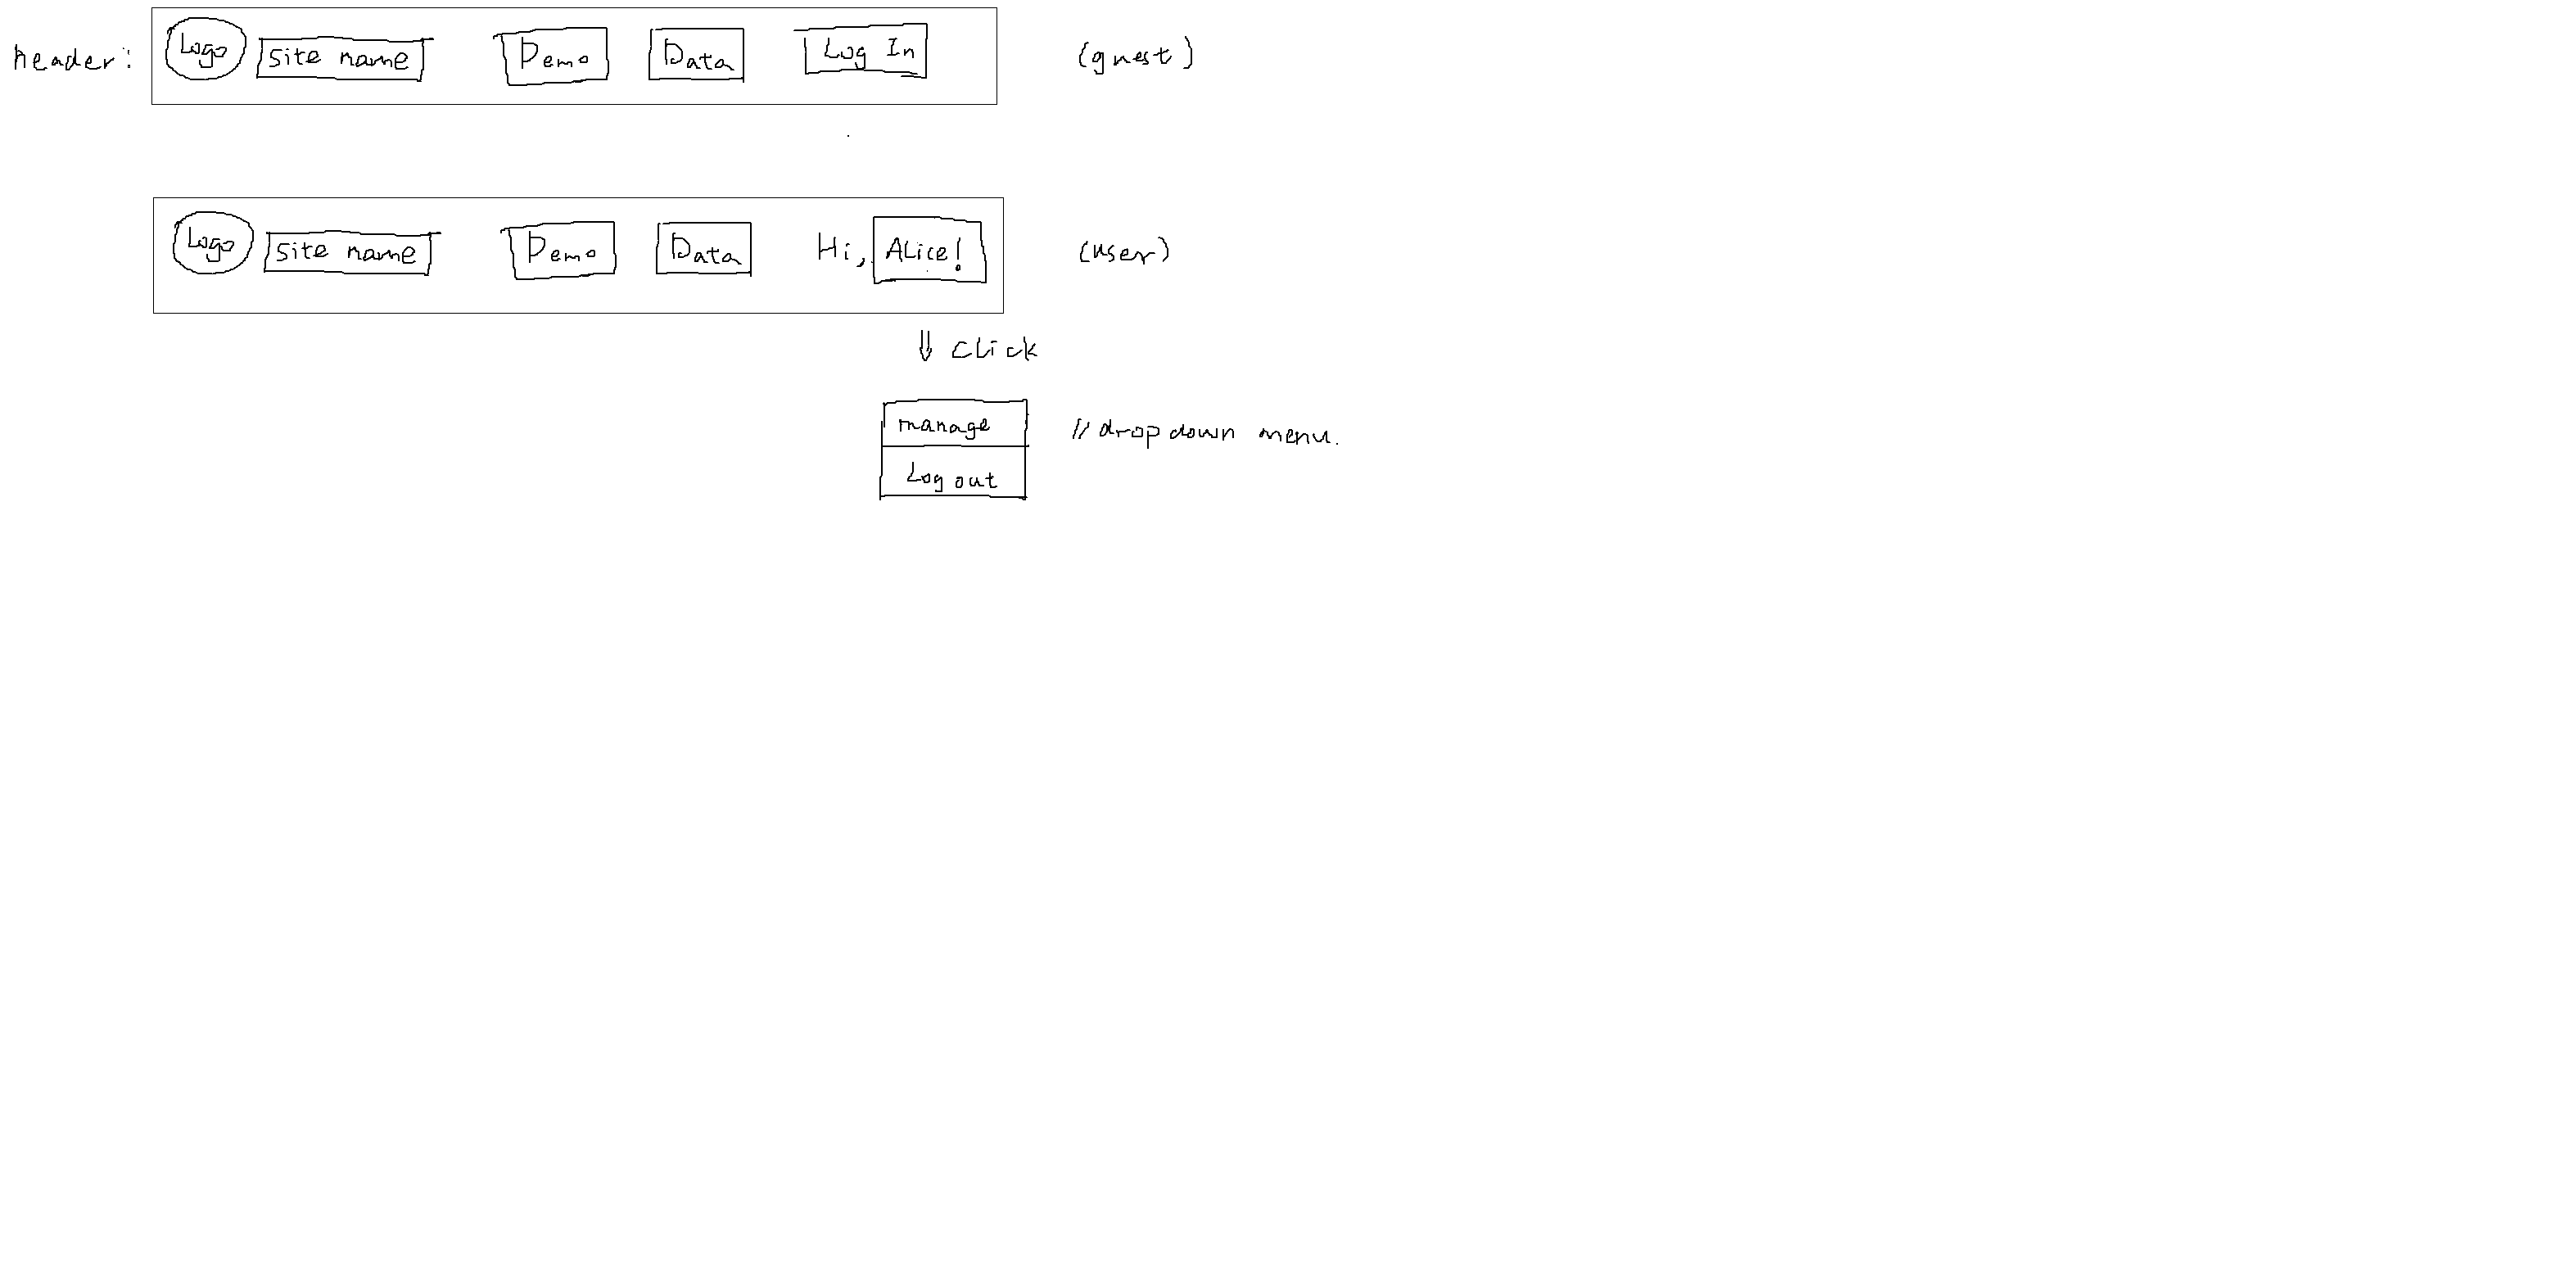 header: Logo Site name Demo Data Log In (guest)
Logo Site name Demo Data Hi, Alice! (user)
⇓ click
manage // dropdown menu.
Log out